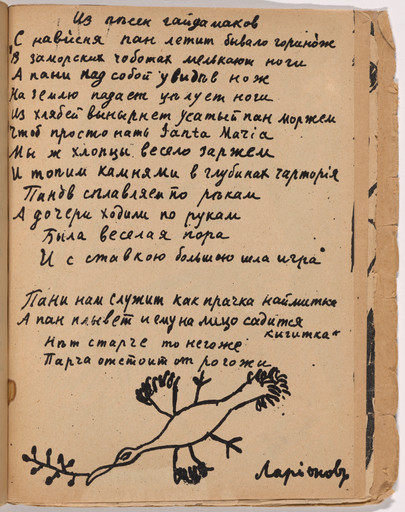 Из пѣсен гайдамаков
"С навісня пан летит бывало горинож
В заморских чоботах мелькают ноги
А пани над собой увидѣв нож
На землю падает цѣлует ноги
Из хлябей вынырнет усатый пан моржем
Чтоб простонать Santa Maria
Мы ж хлопцы весело заржем
И топим камнями в глубинах чарторія
Панов сплавляем по рѣкам
А дочери ходили по рукам
Была веселая пора
И с ставкою большою шла игра"
Пани нам служит как прачка наймитка
А пан плывет и ему на лицо садится
кигитка"
Нѣт старче то негоже
Парча отстоит от рогожи
Ларіонов